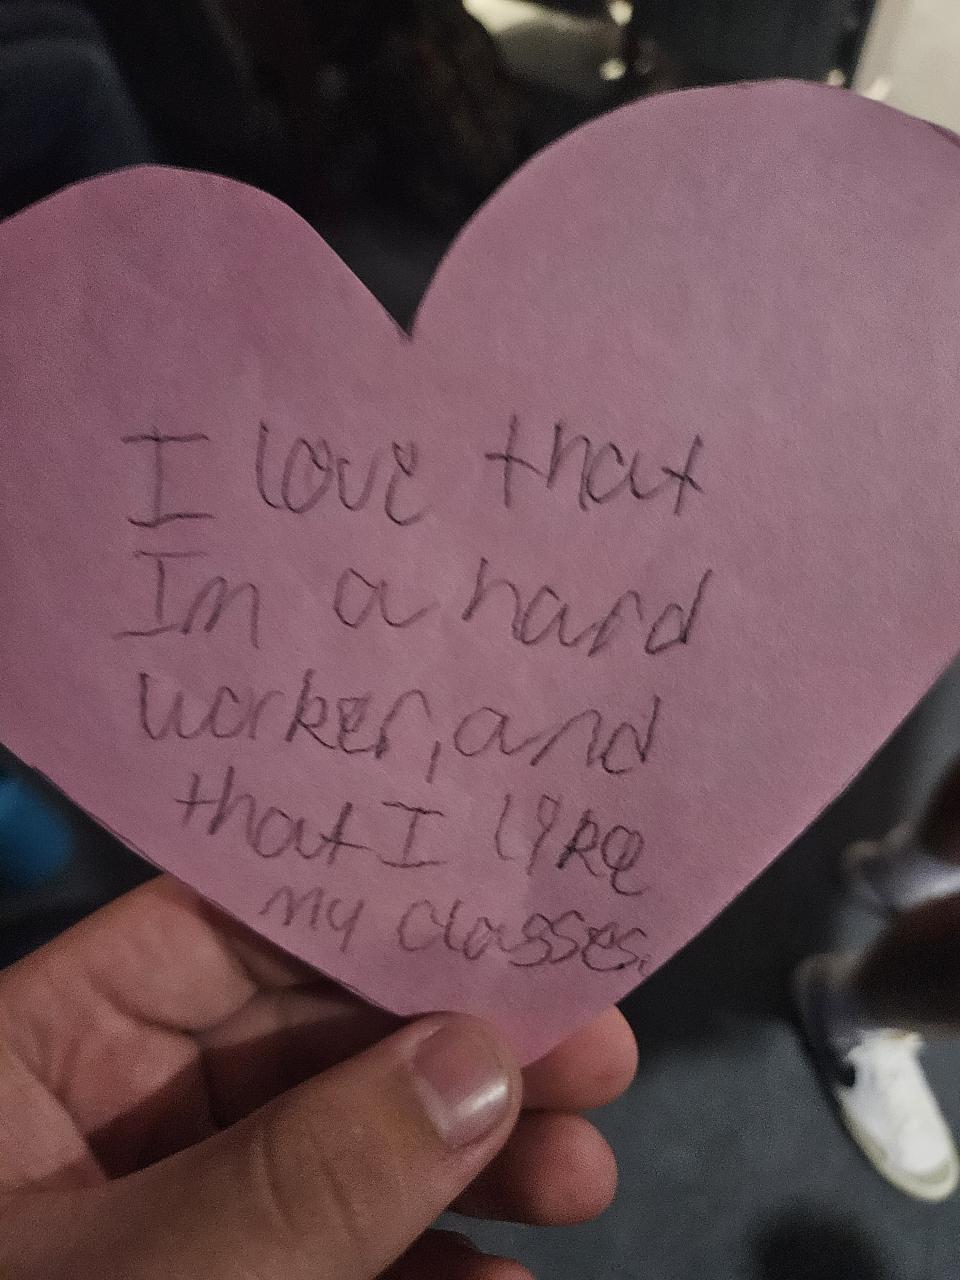 I love that
Im a hard
worker, and
that I like
my classes.